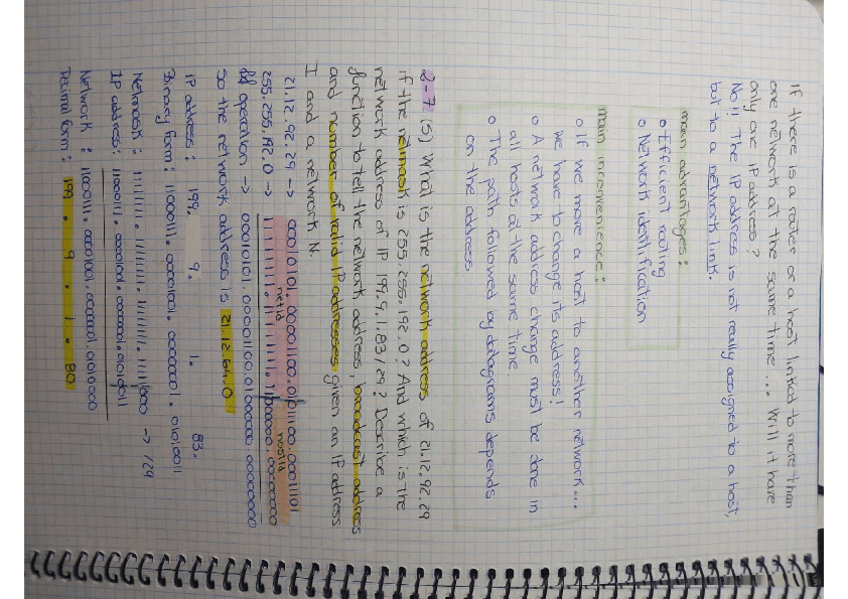 If there is a router or a host linked to more than
one network at the same time... Will it have
only one IP address?
No!! The IP address is not really assigned to a host,
but to a network link.
main advantages:
o Efficient routing
o Network identification
main inconvenience:
o If we move a host to another network...
we have to change its address!
o A network address change must be done in
all hosts at the same time.
o The path followed by datagrams depends
on the address
2-7 (S) What is the network address of 21.12.92.29
if the netmask is 255.255.192.0? And which is the
network address of IP 199.9.1.83/29? Describe a
function to tell the network address, broadcast address
and number of valid IP addresses given an IP address
I and a network N.
21.12.92.29 -> 00010101.00001100.01011100.00011101
255.255.192.0 -> 11111111.11111111.11000000.00000000
netid hostid
operation -> 00010101.00001100.01000000.00000000
so the network address is 21.12.64.0
IP address: 199. 9. 1. 83.
Binary form: 11000111.00001001.00000001.01010011
Netmask: 11111111.11111111.11111111.11111000 -> /29
IP address: 11000111.00001001.00000001.01010011
Network: 11000111.00001001.00000001.01010000
Decimal form: 199 . 9 . 1 . 80